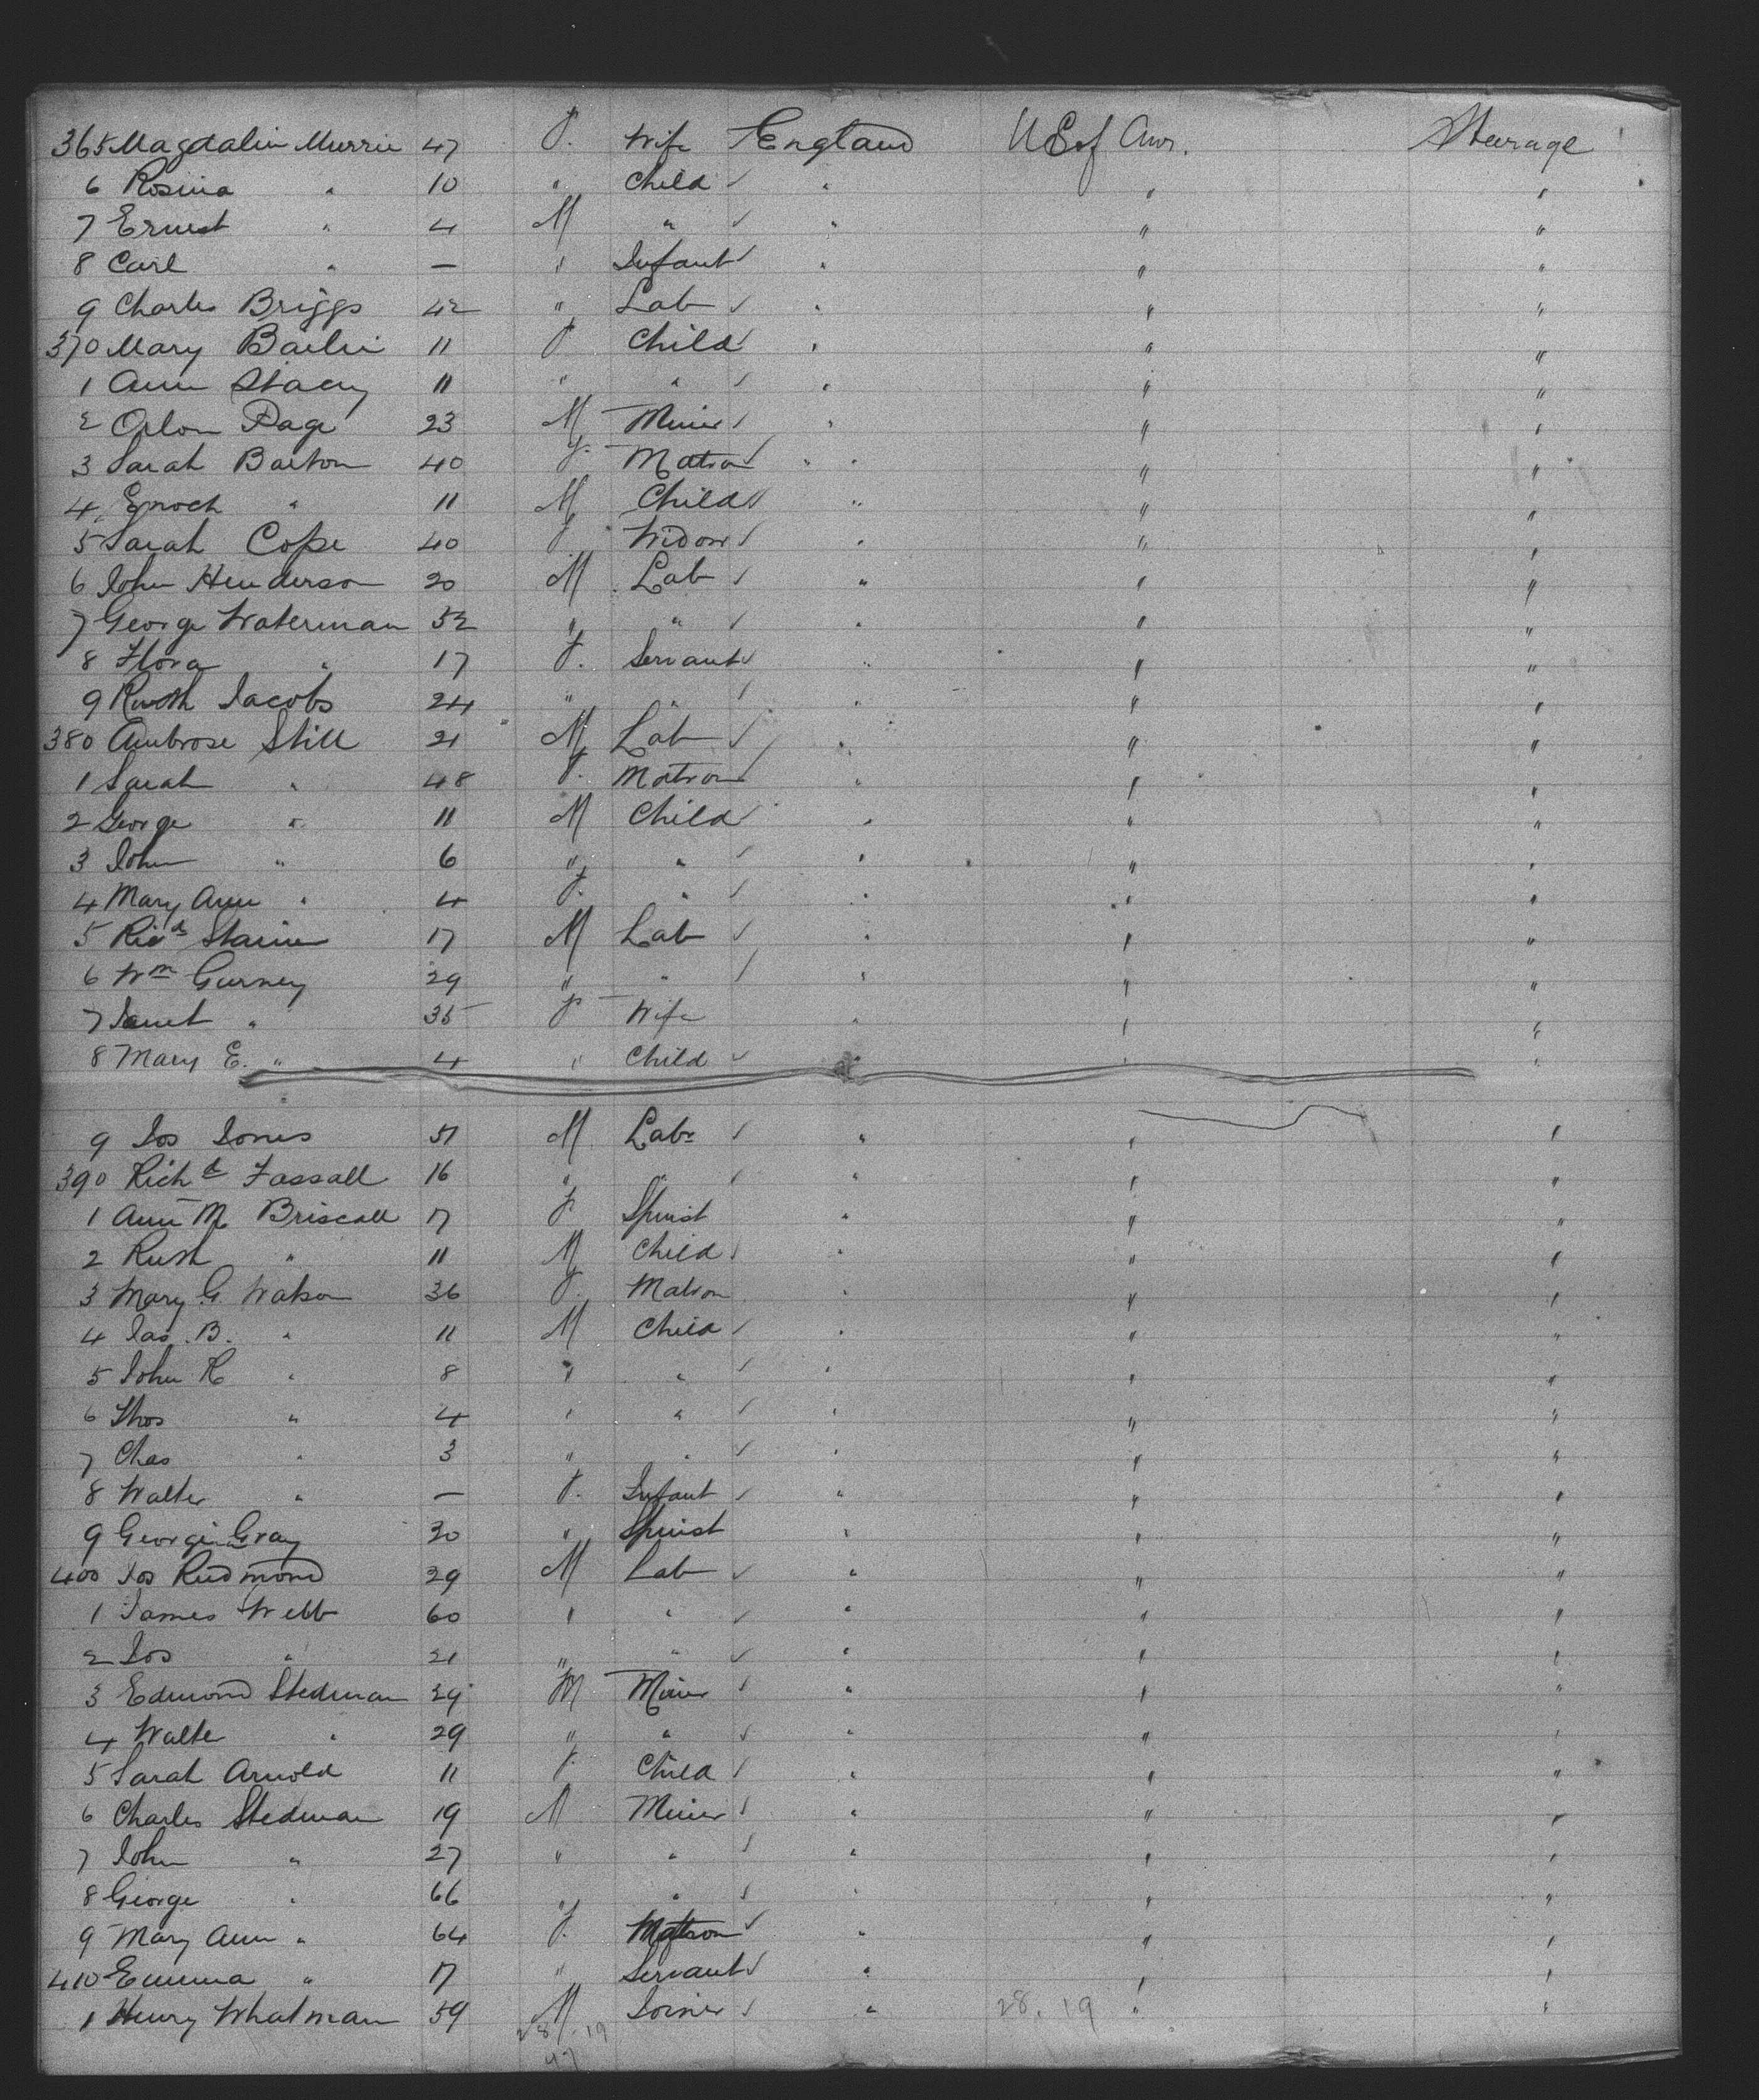 365 Magdalin Murrie 47 F. Wife England U S of Amr. Steerage
6 Rosina " 10 " Child ✓ " " "
7 Ernest " 4 M " ✓ " " "
8 Carl " — " Infant ✓ " " "
9 Charles Briggs 42 " Lab ✓ " " "
370 Mary Bailie 11 F Child ✓ " " "
1 Ann Stacey 11 " " ✓ " " "
2 Orlon Page 23 M Miner ✓ " " "
3 Sarah Barton 40 F. Matron ✓ " " "
4 Enoch " 11 M Child ✓ " " "
5 Sarah Cope 40 F Widow ✓ " " "
6 John Henderson 20 M Lab ✓ " " "
7 George Waterman 52 " " ✓ " " "
8 Flora " 17 F. Servant ✓ " " "
9 Ruth Jacobs 24 " " ✓ " " "
380 Ambrose Still 21 M Lab ✓ " " "
1 Sarah " 48 F. Matron ✓ " " "
2 George " 11 M Child ✓ " " "
3 John " 6 " " ✓ " " "
4 Mary Ann " 4 F. " ✓ " " "
5 Ricd Stainer 17 M Lab ✓ " " "
6 Wm Gurney 29 " " ✓ " " "
7 Janet " 35 F Wife " " "
8 Mary E. " 4 " Child ✓ " " "
9 Jos Jones 51 M Labr ✓ " " "
390 Richd Fassall 16 " " ✓ " " "
1 Ann M Briscall 17 F Spinst " " "
2 Rush " 11 M Child ✓ " " "
3 Mary G. Watson 36 F. Matron " " "
4 Jas. B. " 11 M Child ✓ " " "
5 John R " 8 " " ✓ " " "
6 Thos " 4 " " ✓ " " "
7 Chas " 3 " " ✓ " " "
8 Walter " — F. Infant ✓ " " "
9 Georgina Gray 30 " Spinst " " "
400 Jos Redmond 29 M Lab ✓ " " "
1 James Webb 60 " " ✓ " " "
2 Jos " 21 " " ✓ " " "
3 Edmond Stedman 29 M Miner ✓ " " "
4 Walter " 29 " " ✓ " " "
5 Sarah Arnold 11 F. Child ✓ " " "
6 Charles Stedman 19 M Miner ✓ " " "
7 John " 27 " " ✓ " " "
8 George " 66 " " ✓ " " "
9 Mary Ann " 64 F. Matron ✓ " " "
410 Emma " 17 " Servant ✓ " " "
1 Henry Whatman 59 M Joiner ✓ " 28.19 " "
28.19
47